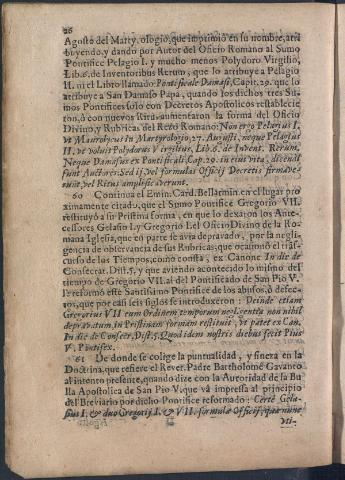 26
Agosto del Martyrologio, que imprimiò en su nombre, atri
buyendo, y dando por Autor del Oficio Romano al Sumo
Pontifice Pelagio I. y mucho menos Polydoro Virgilio,
Lib. 6. de Inventoribus Rerum, que lo atribuye a Pelagio
II. ni el Libro llamado Pontifical de Damaso, Capit. 29. que lo
atribuye a San Damaso Papa, quando los dichos tres Su-
mos Pontifices solo con Decretos Apostolicos restablecie
ron, ò con nuevos Ritos aumentaron la forma del Oficio
Divino, y Rubricas del Rezo Romano: Non ergo Pelagius I.
vt Maurolycus in Martyrologio, 27. Augusti, neque Pelagius
II. vt voluit Polydorus Virgilius, Lib. 6. de Invent. Rerum,
Neque Damasus ex Pontificali, Cap. 29. in eius vita, dicendi
sunt Auctores: Sed ij, vel formulas Officij Decretis firmave-
runt, vel Ritus amplificaverunt.
60 Continùa el Emin. Card. Bellarmin. en el lugar pro
ximamente citado, que el Sumo Pontifice Gregorio VII.
restituyò a su Pristina forma, en que lo dexaron los Ante-
cessores Gelasio I. y Gregorio I. el Oficio Divino de la Ro-
mana Iglesia, que en parte se avia depravado, por la negli-
gencia de observancia de sus Rubricas, que ocasionò el tras-
curso de los Tiempos, como consta, ex Canone In die de
Consecrat. Dist. 5. y que aviendo acontecido lo mismo del
tiempo de Gregorio VII. al del Pontificado de San Pio V.
le reformò este Santissimo Pontifice de los abusos, ò defec-
tos, que por casi seis siglos se introduxeron: Deinde etiam
Gregorius VII eum Ordinem temporum negligentia non nihil
depravatum, in Pristinam formam restituit, vt patet ex Can.
In die de Consecr. Dist. 5. Quod idem nostris diebus fecit Pius
V. Pontifex.
61 De donde se colige la puntualidad, y fineza en la
Doctrina, que refiere el Rever. Padre Bartholomè Gavanto
al intento presente, quando dize con la Autoridad de la Bu
lla Apostolica de San Pio V. que và impressa al principio
del Breviario por dicho Pontifice reformado: Certè Gela-
sius I. & duo Gregorij I. & VII. formulæ Officij, quæ nunc